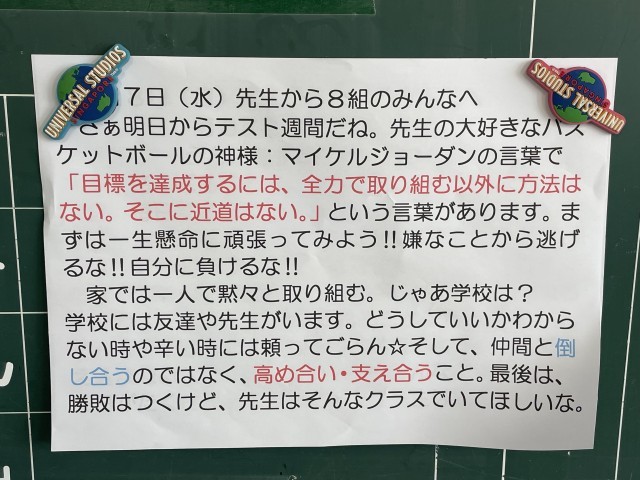 7日（水）先生から８組のみんなへ
さぁ明日からテスト週間だね。先生の大好きなバス
ケットボールの神様：マイケルジョーダンの言葉で
「目標を達成するには、全力で取り組む以外に方法は
ない。そこに近道はない。」という言葉があります。ま
ずは一生懸命に頑張ってみよう!!嫌なことから逃げ
るな!!自分に負けるな!!
家では一人で黙々と取り組む。じゃあ学校は？
学校には友達や先生がいます。どうしていいかわから
ない時や辛い時には頼ってごらん☆そして、仲間と倒
し合うのではなく、高め合い・支え合うこと。最後は、
勝敗はつくけど、先生はそんなクラスでいてほしいな。
UNIVERSAL STUDIOS
SINGAPORE
UNIVERSAL STUDIOS